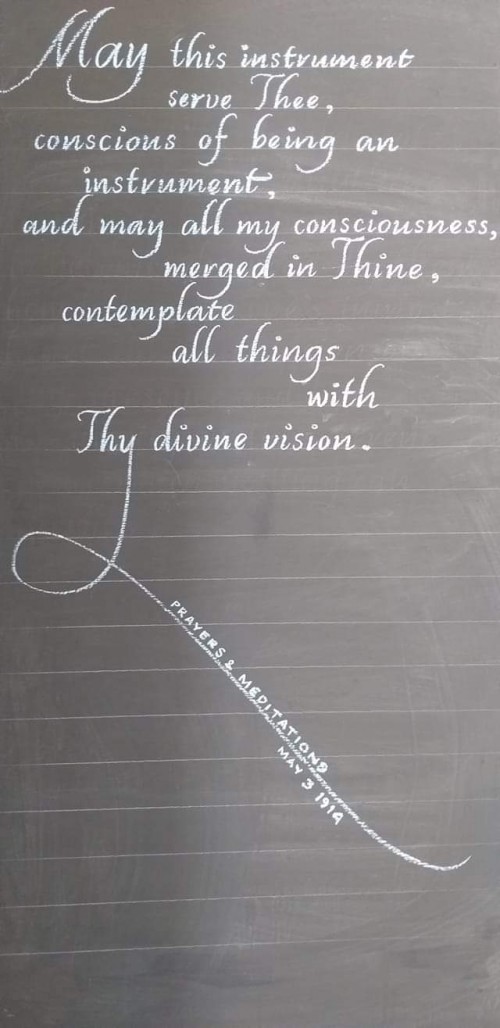 May this instrument
serve Thee,
conscious of being an
instrument,
and may all my consciousness,
merged in Thine,
contemplate
all things
with
Thy divine vision.
PRAYERS & MEDITATIONS
MAY 3 1914